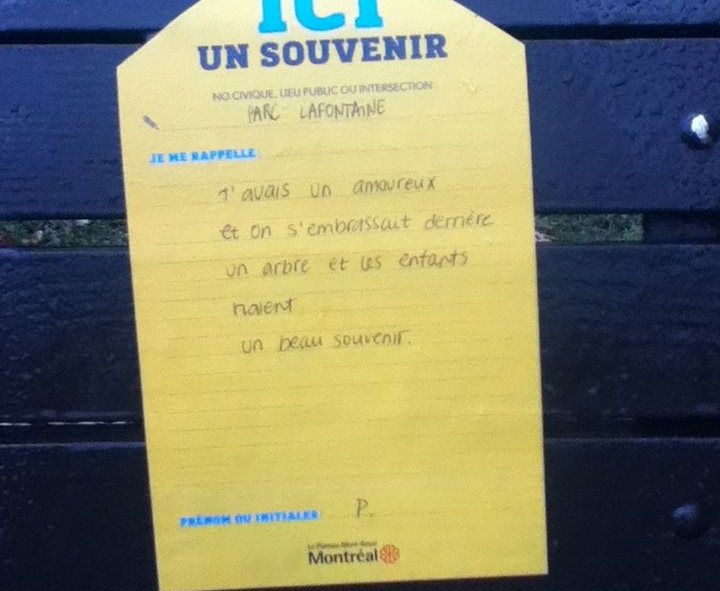 ICI
UN SOUVENIR
NO CIVIQUE, LIEU PUBLIC OU INTERSECTION
PARC LAFONTAINE
JE ME RAPPELLE
J'avais un amoureux
et on s'embrassait derrière
un arbre et les enfants
riaient
un beau souvenir.
PRÉNOM OU INITIALES
P.
Le Plateau-Mont-Royal
Montréal